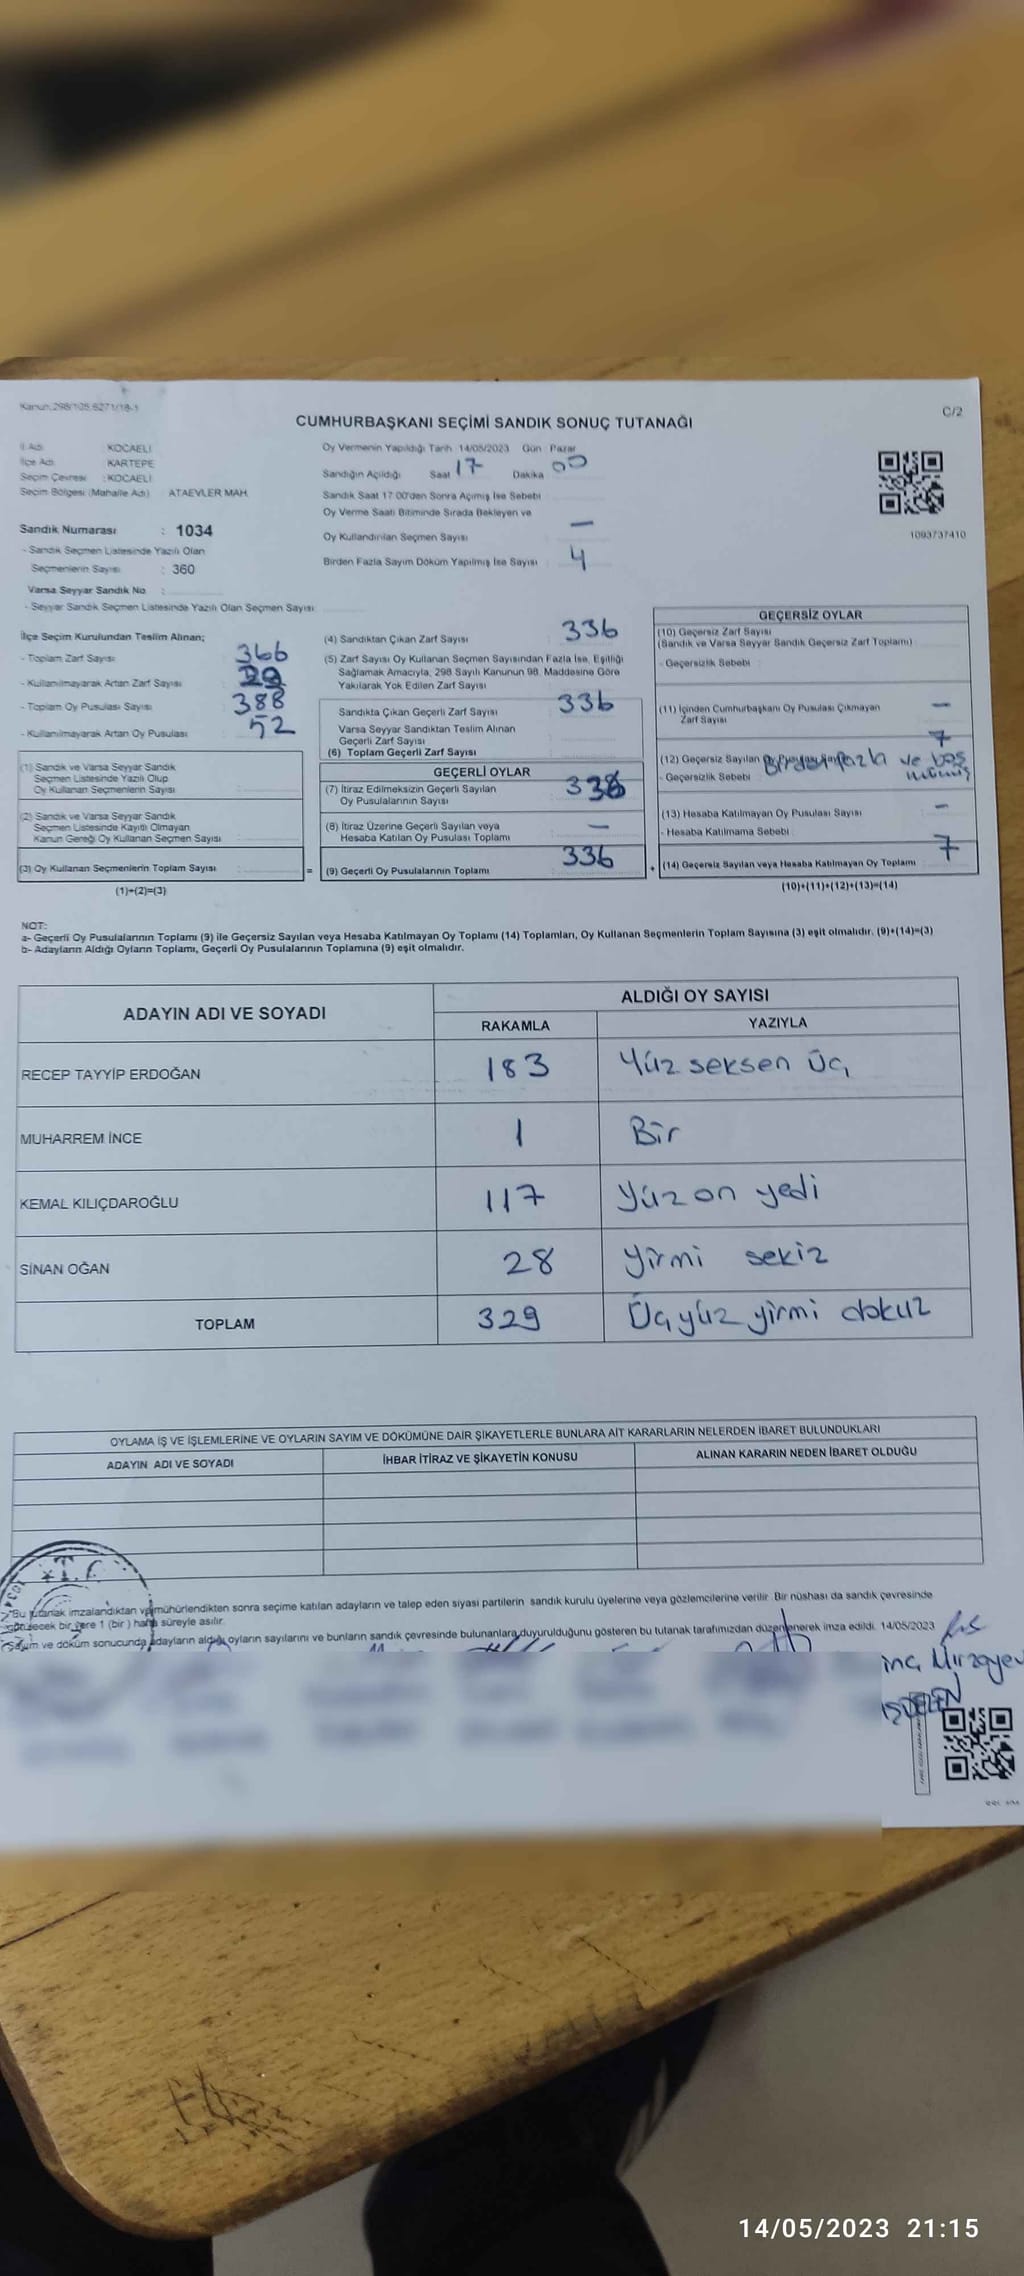 Kanun.298/105.6271/18-1
C/2
CUMHURBAŞKANI SEÇİMİ SANDIK SONUÇ TUTANAĞI
İl Adı : KOCAELİ
İlçe Adı : KARTEPE
Seçim Çevresi : KOCAELİ
Seçim Bölgesi (Mahalle Adı) : ATAEVLER MAH.
Sandık Numarası : 1034
- Sandık Seçmen Listesinde Yazılı Olan
Seçmenlerin Sayısı : 360
Varsa Seyyar Sandık No :
- Seyyar Sandık Seçmen Listesinde Yazılı Olan Seçmen Sayısı :
Oy Vermenin Yapıldığı Tarih 14/05/2023 Gün Pazar
Sandığın Açıldığı Saat 17 Dakika 00
Sandık Saat 17:00'den Sonra Açımış İse Sebebi
Oy Verme Saati Bitiminde Sırada Bekleyen ve
Oy Kullandırılan Seçmen Sayısı : —
Birden Fazla Sayım Döküm Yapılmış İse Sayısı : 4
1093737410
İlçe Seçim Kurulundan Teslim Alınan;
- Toplam Zarf Sayısı : 366
- Kullanılmayarak Artan Zarf Sayısı :
- Toplam Oy Pusulası Sayısı : 388
- Kullanılmayarak Artan Oy Pusulası : 52
(1) Sandık ve Varsa Seyyar Sandık
Seçmen Listesinde Yazılı Olup
Oy Kullanan Seçmenlerin Sayısı
(2) Sandık ve Varsa Seyyar Sandık
Seçmen Listesinde Kayıtlı Olmayan
Kanun Gereği Oy Kullanan Seçmen Sayısı
(3) Oy Kullanan Seçmenlerin Toplam Sayısı
(1)+(2)=(3)
(4) Sandıktan Çıkan Zarf Sayısı : 336
(5) Zarf Sayısı Oy Kullanan Seçmen Sayısından Fazla İse, Eşitliği
Sağlamak Amacıyla, 298 Sayılı Kanunun 98. Maddesine Göre
Yakılarak Yok Edilen Zarf Sayısı
Sandıkta Çıkan Geçerli Zarf Sayısı : 336
Varsa Seyyar Sandıktan Teslim Alınan
Geçerli Zarf Sayısı
(6) Toplam Geçerli Zarf Sayısı
GEÇERLİ OYLAR
(7) İtiraz Edilmeksizin Geçerli Sayılan
Oy Pusulalarının Sayısı : 336
(8) İtiraz Üzerine Geçerli Sayılan veya
Hesaba Katılan Oy Pusulası Toplamı : —
(9) Geçerli Oy Pusulalarının Toplamı : 336
GEÇERSİZ OYLAR
(10) Geçersiz Zarf Sayısı
(Sandık ve Varsa Seyyar Sandık Geçersiz Zarf Toplamı) :
- Geçersizlik Sebebi :
(11) İçinden Cumhurbaşkanı Oy Pusulası Çıkmayan
Zarf Sayısı —
(12) Geçersiz Sayılan 7
- Geçersizlik Sebebi : fazla ve boş
(13) Hesaba Katılmayan Oy Pusulası Sayısı : -
- Hesaba Katılmama Sebebi :
(14) Geçersiz Sayılan veya Hesaba Katılmayan Oy Toplamı : 7
(10)+(11)+(12)+(13)=(14)
NOT:
a- Geçerli Oy Pusulalarının Toplamı (9) ile Geçersiz Sayılan veya Hesaba Katılmayan Oy Toplamı (14) Toplamları, Oy Kullanan Seçmenlerin Toplam Sayısına (3) eşit olmalıdır. (9)+(14)=(3)
b- Adayların Aldığı Oyların Toplamı, Geçerli Oy Pusulalarının Toplamına (9) eşit olmalıdır.
ADAYIN ADI VE SOYADI
ALDIĞI OY SAYISI
RAKAMLA YAZIYLA
RECEP TAYYİP ERDOĞAN 183 Yüz seksen üç
MUHARREM İNCE 1 Bir
KEMAL KILIÇDAROĞLU 117 Yüz on yedi
SİNAN OĞAN 28 Yirmi sekiz
TOPLAM 329 Üçyüz yirmi dokuz
OYLAMA İŞ VE İŞLEMLERİNE VE OYLARIN SAYIM VE DÖKÜMÜNE DAİR ŞİKAYETLERLE BUNLARA AİT KARARLARIN NELERDEN İBARET BULUNDUKLARI
ADAYIN ADI VE SOYADI İHBAR İTİRAZ VE ŞİKAYETİN KONUSU ALINAN KARARIN NEDEN İBARET OLDUĞU
T.C.
Bu tutanak imzalandıktan ve mühürlendikten sonra seçime katılan adayların ve talep eden siyasi partilerin sandık kurulu üyelerine veya gözlemcilerine verilir. Bir nüshası da sandık çevresinde
görülecek bir yere 1 (bir) hafta süreyle asılır.
Sayım ve döküm sonucunda adayların aldığı oyların sayılarını ve bunların sandık çevresinde bulunanlara duyurulduğunu gösteren bu tutanak tarafımızdan düzenlenerek imza edildi. 14/05/2023
Mirzayev
14/05/2023 21:15